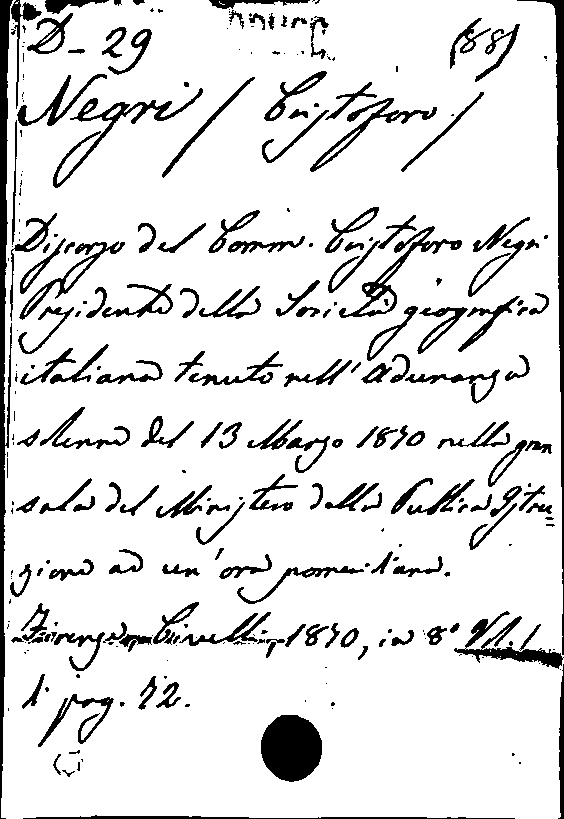 D-29 (88)
Negri / Cristoforo /
Discorso del Comm. Cristoforo Negri
Presidente della Società geografica
italiana tenuto nell'adunanza
solenne del 13 Marzo 1870 nella gran
sala del Ministero della Pubblica Istru=
zione ad un'ora pomeridiana.
Firenze, Civelli, 1870, in 8° Vol. 1
di pag. 72.